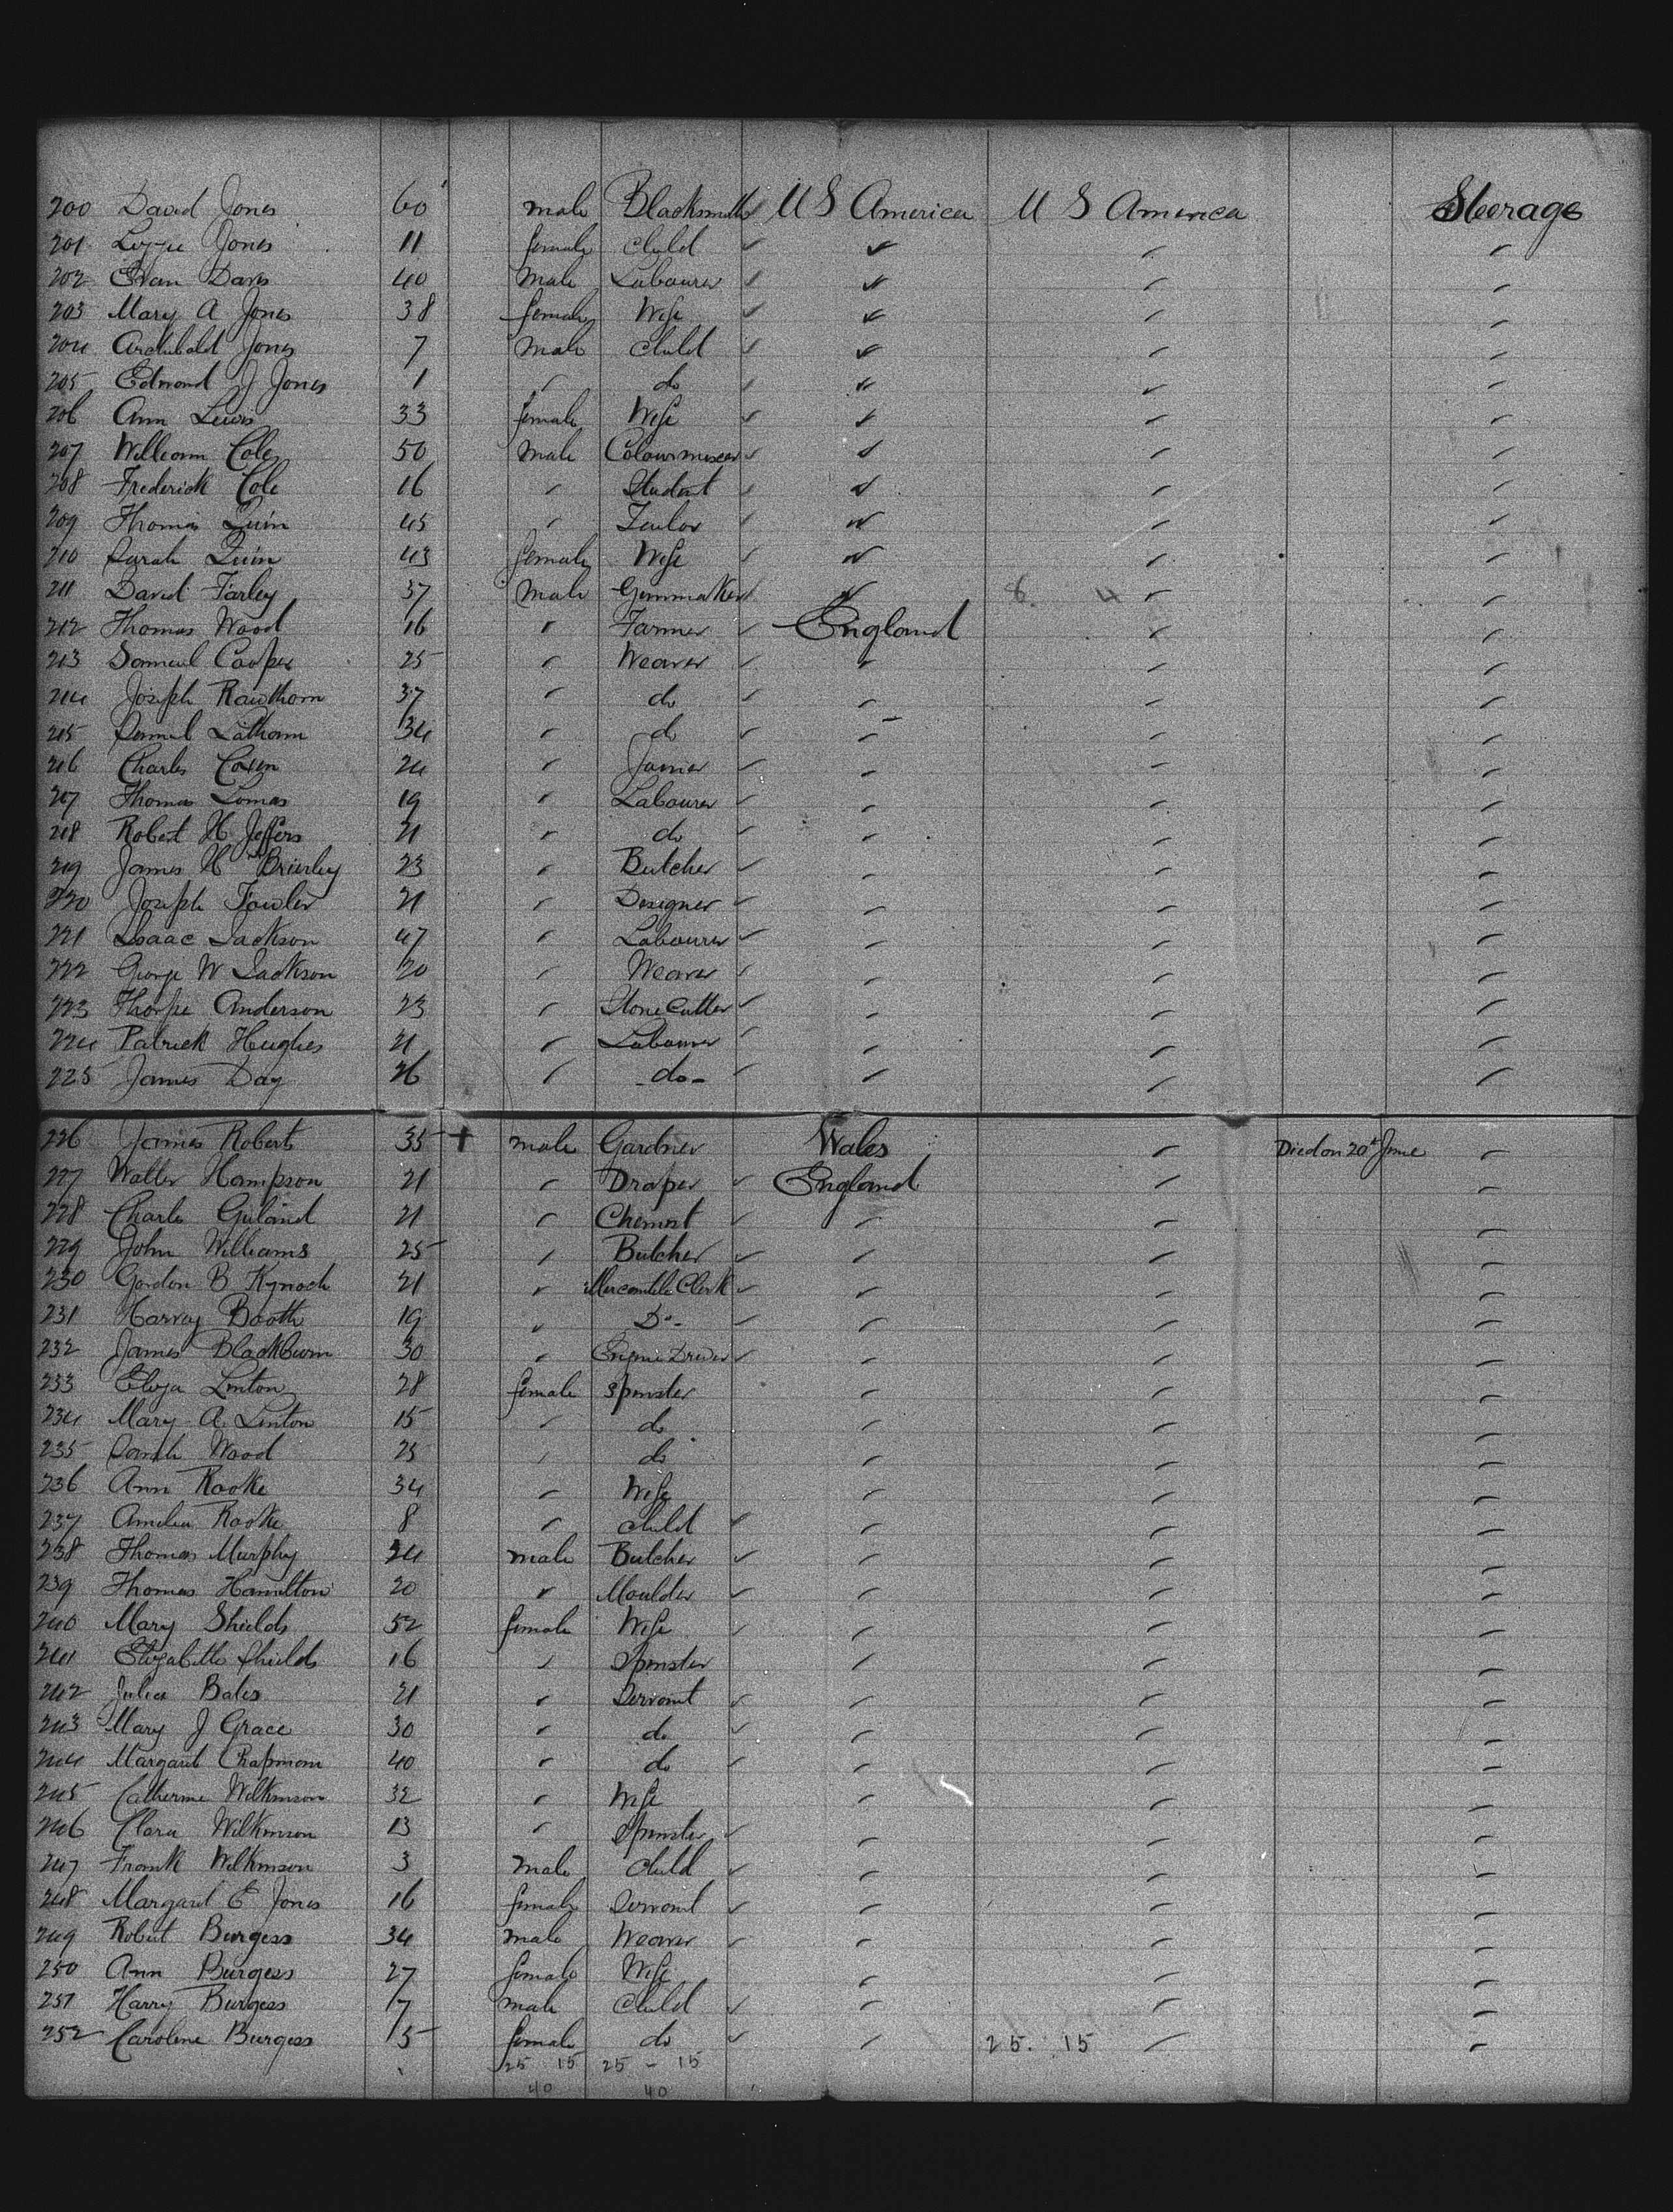 200 David Jones 60 male Blacksmith US America U S America Steerage
201 Lizzie Jones 11 female child
202 Evan Davis 40 male Labourer
203 Mary A Jones 38 female Wife
204 Archibald Jones 7 male child
205 Edmond J Jones 1 " do
206 Ann Lewis 33 female Wife
207 William Cole 50 male Colourmixer
208 Frederick Cole 16 " Student
209 Thomas Quin 45 " Tailor
210 Sarah Quin 43 female Wife
211 David Farley 37 male 8. 4
212 Thomas Wood 16 " Farmer England
213 Samuel Cooper 25 " Weaver "
214 Joseph Rawthorn 37 " do "
215 Samuel Latham 34 " do "
216 Charles 24 " Joiner "
217 Thomas Lomas 19 " Labourer "
218 Robert H Jeffers 21 " do "
219 James H Brierley 23 " Butcher "
220 Joseph Fowler 21 " Designer "
221 Isaac Jackson 47 " Labourer "
222 George W Jackson 20 " Weaver "
223 Thorpe Anderson 23 " Stone Cutter "
224 Patrick Hughes 21 " Labourer "
225 James Day 26 " -do- "
226 James Roberts 35 + male Gardner Wales " Died on 20th June "
227 Walter Hampson 21 " Draper England
228 Charles 21 " Chemist "
229 John Williams 25 " Butcher "
230 Gordon B Kynoch 21 " Mercantile Clerk "
231 Harvey Booth 19 " Do- "
232 James Blackburn 30 " Engine Driver "
233 Eliza Linton 28 female Spinster "
234 Mary A. Linton 15 " do "
235 Sarah Wood 25 " do "
236 Ann Rooke 34 " Wife "
237 Amelia Rooke 8 " child "
238 Thomas Murphy 24 male Butcher "
239 Thomas Hamilton 20 " Moulder "
240 Mary Shields 52 female Wife "
241 Elizabeth Shields 16 " Spinster "
242 Julia Bates 21 " Servant "
243 Mary J Grace 30 " do "
244 Margaret Chapman 40 " do "
245 Catherine Wilkinson 32 " Wife "
246 Clara Wilkinson 13 " Spinster "
247 Frank Wilkinson 3 male child "
248 Margaret E Jones 16 female Servant "
249 Robert Burgess 34 male Weaver "
250 Ann Burgess 27 female Wife "
251 Harry Burgess 7 male Child "
252 Caroline Burgess 5 female do " 25. 15
25 15 25 - 15
40 40